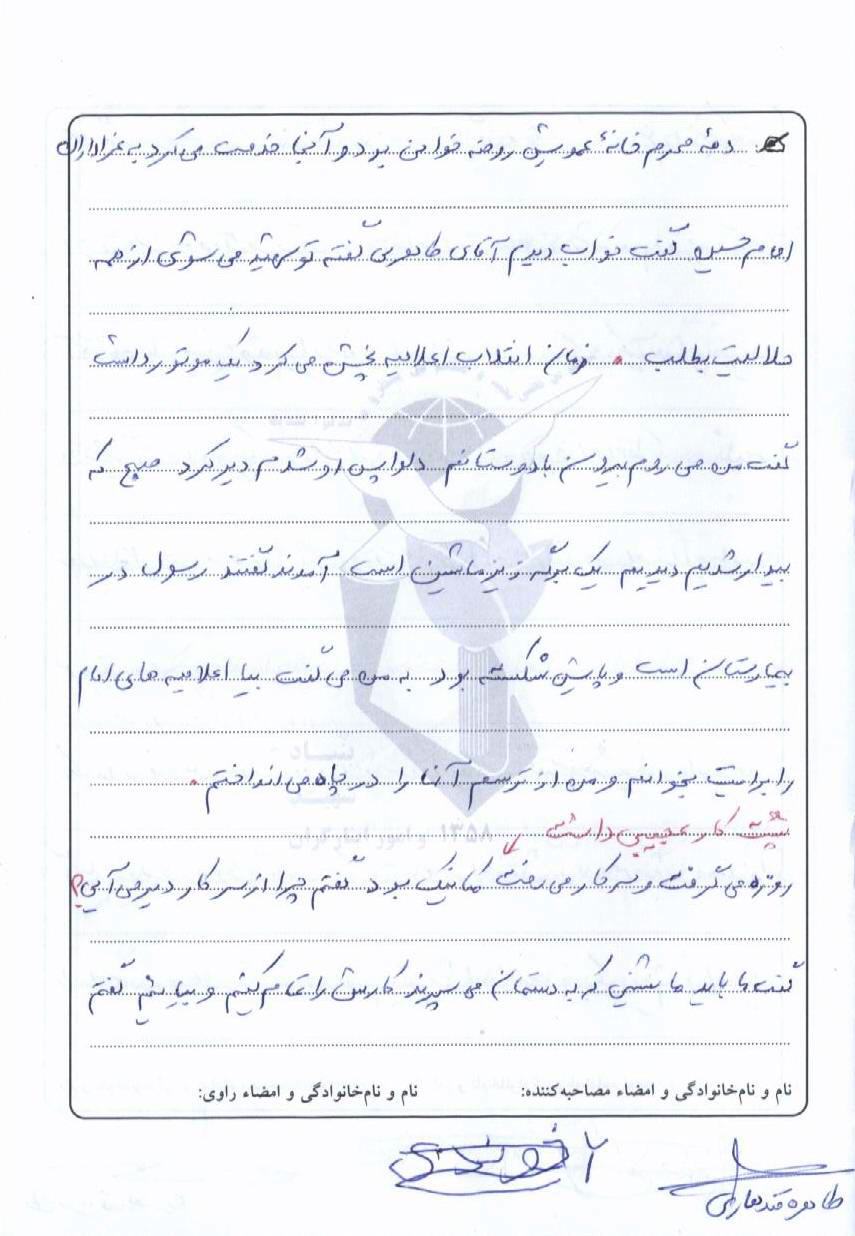 دههٔ محرم خانهٔ عمویش روضه خوانی بود و آنجا خدمت می‌کرد به عزاداران
امام حسین گفت خواب دیدم آقای طاهری گفته تو شهید می شوی از همه
حلالیت بطلب . زمان انقلاب اعلامیه پخش می کرد یک موتور داشت
گفت من می روم بیرون با دوستانم دلواپس او شدم دیر کرد صبح که
بیدار شدیم دیدیم یک برگه زیر ماشین است آمدند گفتند رسول در
بیمارستان است و پایش شکسته بود به من می گفت بیا اعلامیه های امام
را برایت بخوانم و من از ترسم آنها را در چاه می انداختم .
پشت کار عجیبی داشت
روزه می گرفت و سر کار می رفت مکانیک بود گفتم چرا از سر کار دیر می آیی؟
گفت ما باید ماشینی که به دستمان می سپرند کارش را تمام کنیم و بیائیم گفتم
نام و نام‌خانوادگی و امضاء مصاحبه‌کننده:
نام و نام‌خانوادگی و امضاء راوی:
طاهره قندهاری
بنیاد
شهید
و امور ایثارگران
۱۳۵۸